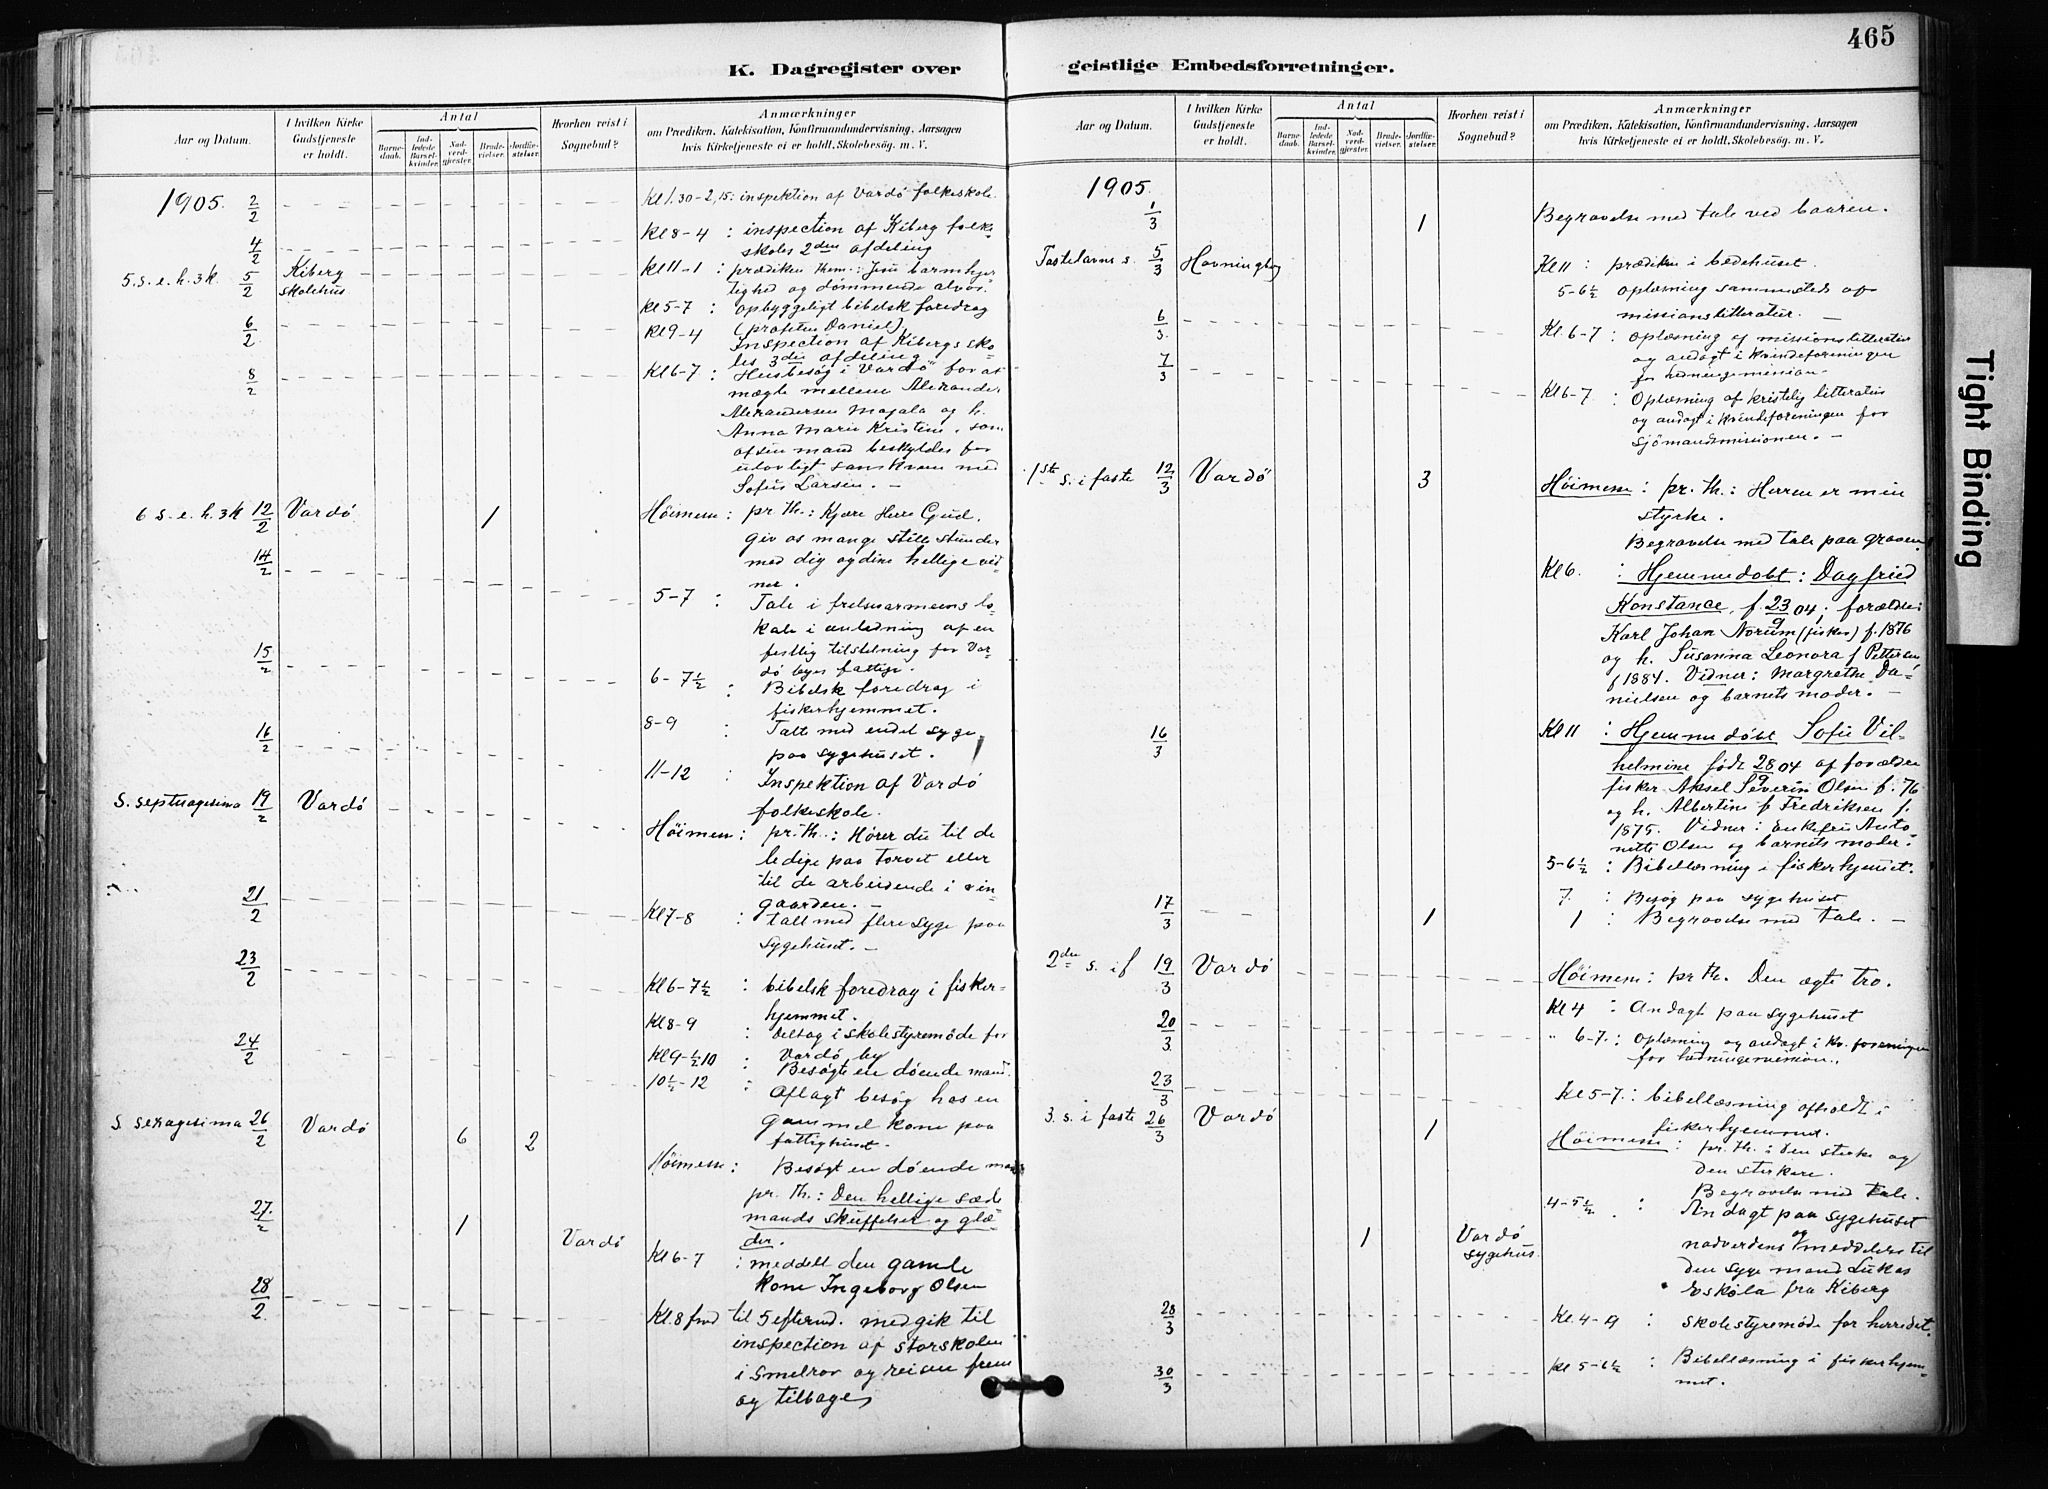 465
K. Dagregister over geistlige Embedsforretninger.
Aar og Datum.
I hvilken Kirke Gudstjeneste er holdt.
Antal
Barnedaab.
Indledede Barselkvinder.
Nadverdgjester.
Brudevielser.
Jordfæstelser.
Hvorhen reist i Sognebud?
Anmærkninger
om Prædiken, Katekisation, Konfirmandundervisning, Aarsagen
hvis Kirketjeneste ei er holdt, Skolebesøg. m. V.
1905. 2/2 Kl 1.30-2,15: inspektion af Vardö folkeskole.
4/2 Kl 8-4 : inspection af Kiberg folke-
skoles 2den afdeling
5. s. e. h. 3 k. 5/2 Kiberg skolehus Kl 11-1 : prædiken them.: Jesu barmhjer-
tighed og dømmende alvor.
Kl 5-7 : opbyggeligt bibelsk foredrag
(profeten Daniel)
6/2 Kl 9-4 Inspection af Kibergs sko-
les 3die afdeling
8/2 Kl 6-7 : Husbesøg i Vardö for at
mægle mellem Alexander
Alexandersen Majala og h.
Anna Marie Kristine, som
af sin mand beskyldes for
ulovligt samkvem med
Sofus Larsen. -
6 s. e. h. 3 k 12/2 Vardö 1 Höimesse : pr. th.: Kjære Herre Gud,
giv os mange stille stunder
med dig og dine hellige vid-
ner.
14/2 5-7 : Tale i frelsesarmeens lo-
kale i anledning af en
festlig tilstelning for Var-
dö byes fattige.
15/2 6-7½ : Bibelsk foredrag i
fiskerhjemmet.
8-9 : Talt med endel syge
paa sygehuset.
16/2 11-12 : Inspektion af Vardö
folkeskole.
S. septuagesima 19/2 Vardö Höimesse : pr. th.: Hører du til de
ledige paa torvet eller
til de arbeidende i vin-
gaarden. -
21/2 Kl 7-8 : talt med flere syge paa
sygehuset. -
23/2 Kl 6-7½ : bibelsk foredrag i fisker-
hjemmet.
Kl 8-9 : deltog i skolestyremöde for
Vardö by
24/2 Kl 9-½10 : Besøgte en döende mand.
10½-12 : Aflagt besøg hos en
gammel kone paa
fattighuset.
S. sexagesima 26/2 Vardö 6 2 Höimesse : Besøgt en döende mand
pr. th.: Den hellige sæde
mands skuffelser og glæ-
der.
27/2 1 Vardö Kl 6-7 : meddelt den gamle
kone Ingeborg Olsen
28/2 Kl. 8 fmd til 5 eftermd. medgik til
inspection af storskolen
i Smelror og reisen frem
og tilbage
Aar og Datum.
I hvilken Kirke Gudstjeneste er holdt.
Antal
Barnedaab.
Indledede Barselkvinder.
Nadverdgjester.
Brudevielser.
Jordfæstelser.
Hvorhen reist i Sognebud?
Anmærkninger
om Prædiken, Katekisation, Konfirmandundervisning, Aarsagen
hvis Kirketjeneste ei er holdt, Skolebesøg. m. V.
1905.
1/3 1 Begravelse med tale ved baaren.
Fastelavns s. 5/3 Havningberg Kl 11 : prædiken i bedehuset.
5-6½ oplæsning sammesteds af
missionslitteratur. -
6/3 Kl. 6-7 : oplæsning af missionslitteratur
og andagt i kvindeforeningen
for hedningemission -
7/3 Kl 6-7 : Oplæsning af kristelig litteratur
og andagt i kvindeforeningen for
sjömandsmissionen. -
1ste s. i faste 12/3 Vardö 3 Höimesse : pr. th.: Herren er min
styrke.
Begravelse med tale paa graven.
Kl 6. : Hjemmedöbt : Dagfried
Konstance, f. 23/9 04; forældre:
Karl Johan Norum (fisker) f. 1876
og h. Susanna Leonora f Pettersen
f 1884. Vidner: Margrethe Da-
nielsen og barnets moder. -
16/3 Kl 11 : Hjemmedöbt Sofie Vil-
helmine født 28/9 04 af forældre
fisker Aksel Severin Olsen f. 76
og h. Albertine f Fredriksen f.
1875. Vidner: Enkefru Anto-
nette Olsen og barnets moder.
5-6½ : Bibellæsning i fiskerhjemmet.
7. : Besøg paa sygehuset
17/3 1 1 : Begravelse med tale. -
2den s. i f 19/3 Vardö Höimesse : pr th. Den ægte tro.
Kl 4 : Andagt paa sygehuset
20/3 " 6-7. : oplæsning og andagt i kv. foreningen
for hedningemission.
23/3 Kl 5-7. : bibellæsning afholdt i
fiskerhjemmet.
3. s. i faste 26/3 Vardö 1 Höimesse : pr. th.: den sterke og
den sterkere.
Begravelse med tale.
1 Vardö sygehus. 4-5½ : Andagt paa sygehuset
og
nadverdens meddelelse til
den syge mand Lukas
Eskola fra Kiberg
28/3 Kl. 4-9 : skolestyremöde for herredet.
30/3 Kl 5-6½ : Bibellæsning i fiskerhjem-
met.
Tight Binding